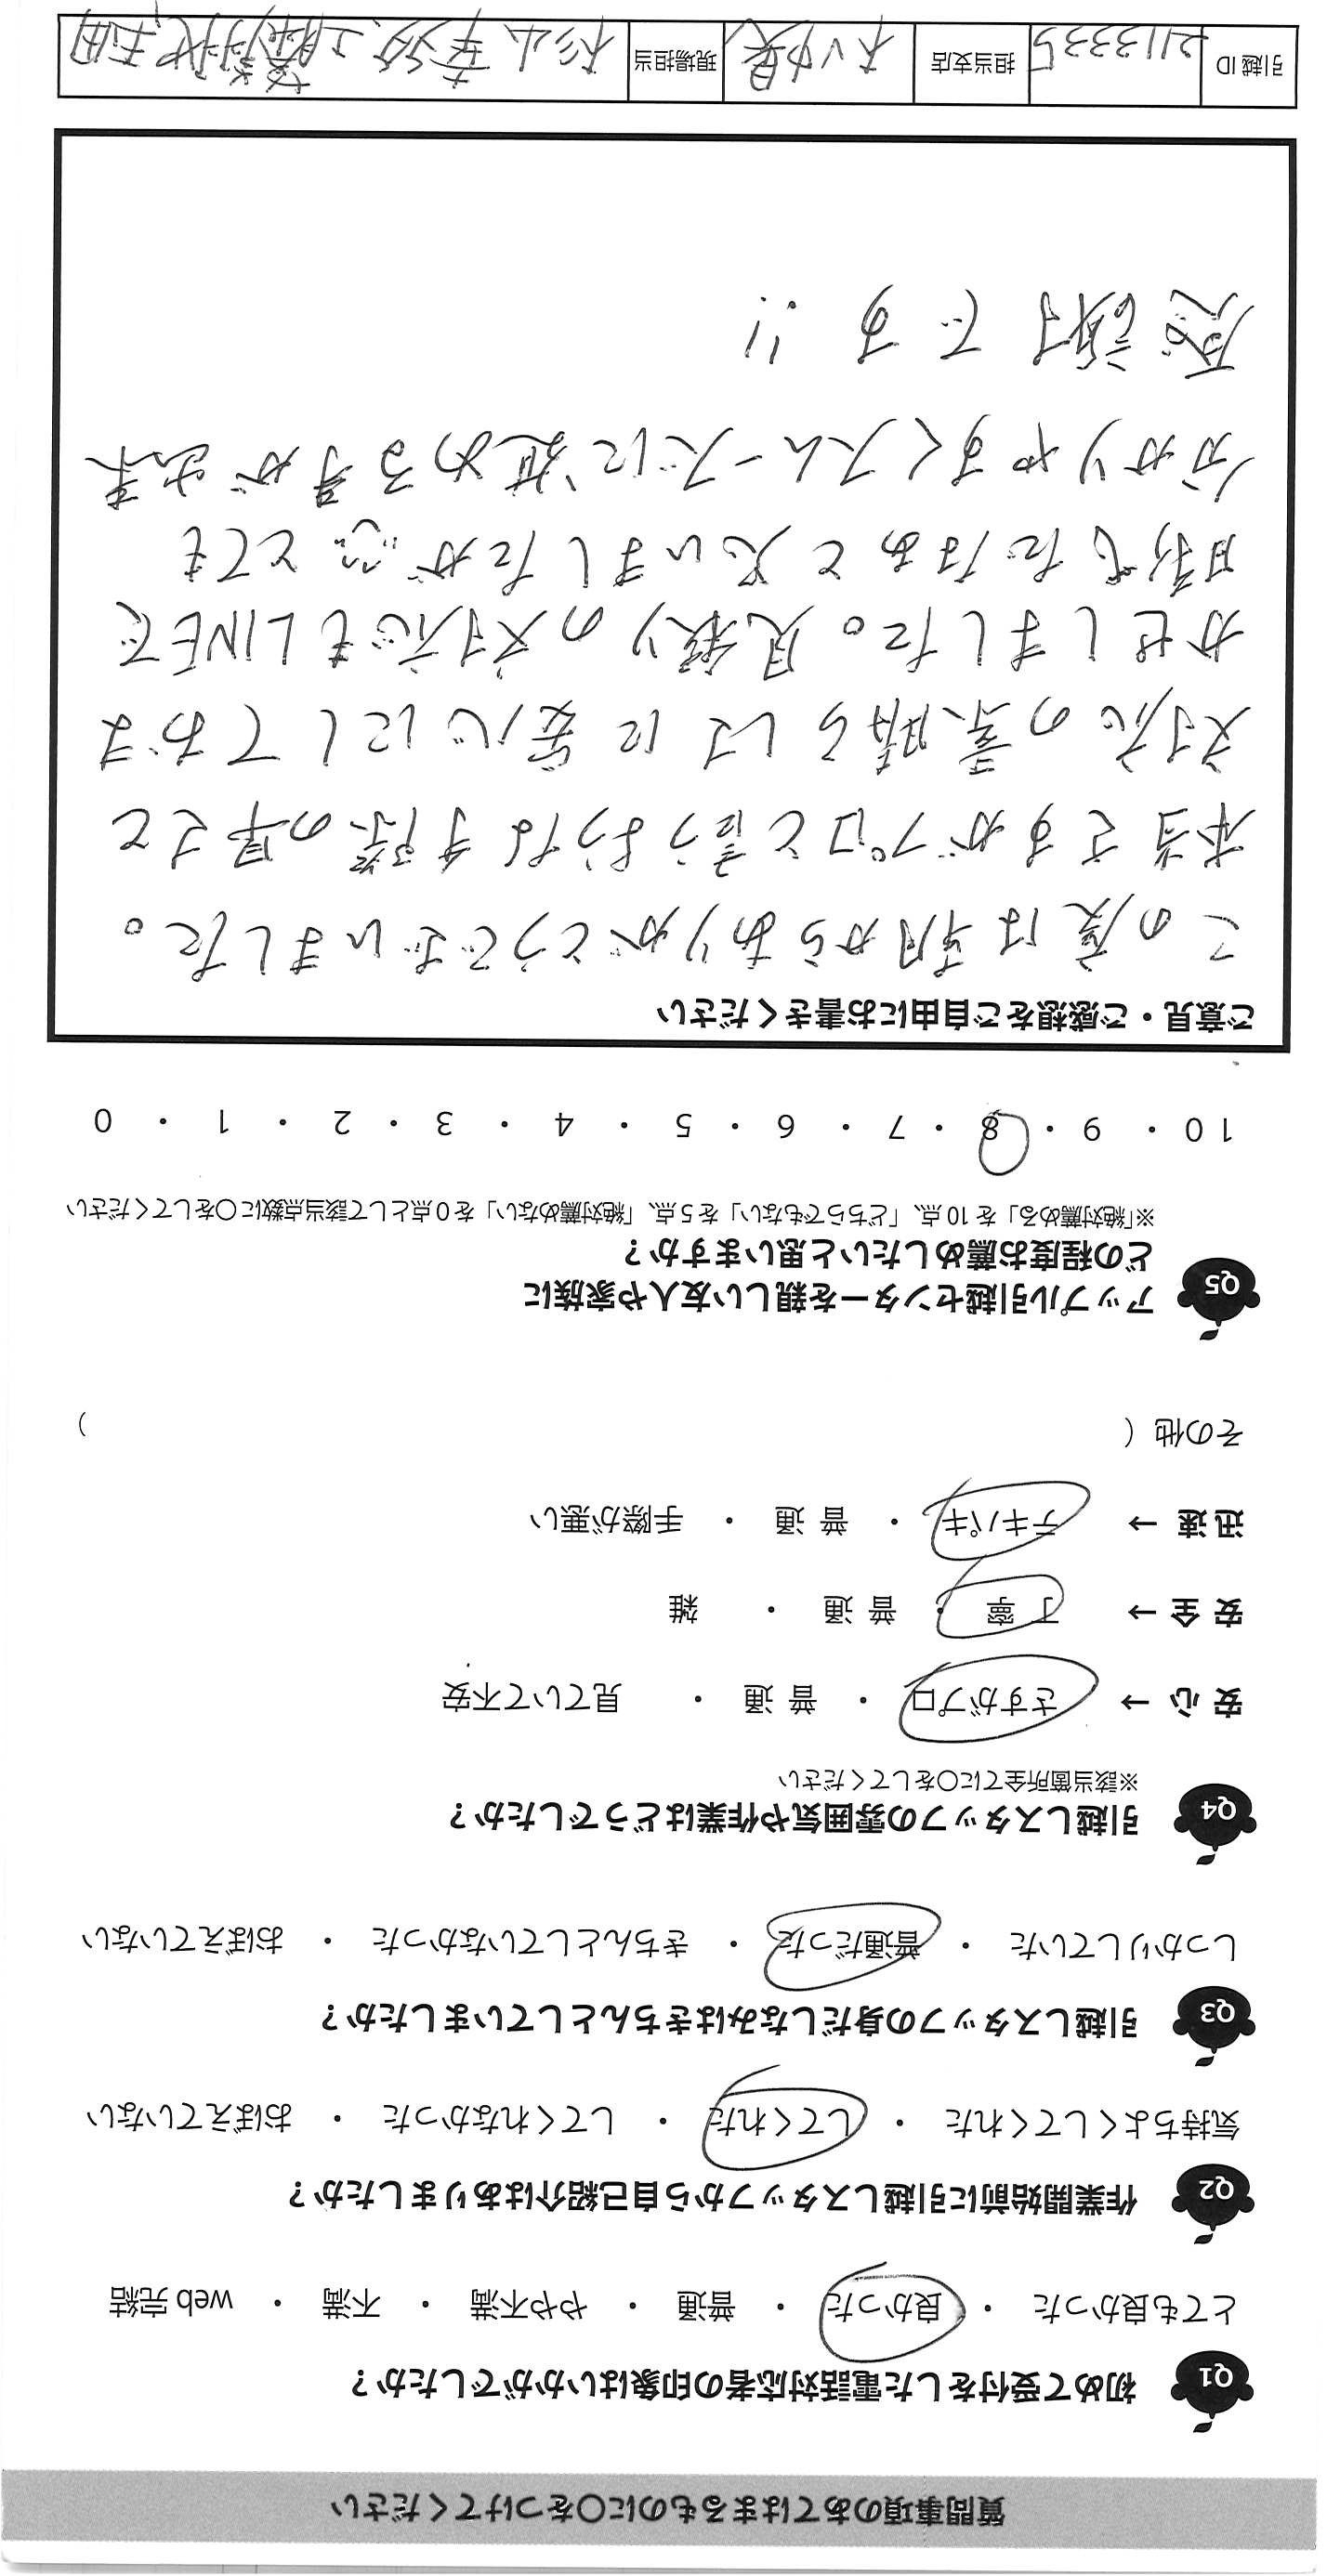 質問事項のあてはまるものに〇をつけてください
Q1 初めて受付をした電話対応者の印象はいかがでしたか?
とても良かった ・ 良かった ・ 普通 ・ やや不満 ・ 不満 ・ web 完結
Q2 作業開始前に引越しスタッフから自己紹介はありましたか?
気持ちよくしてくれた ・ してくれた ・ してくれなかった ・ おぼえていない
Q3 引越しスタッフの身だしなみはきちんとしていましたか?
しっかりしていた ・ 普通だった ・ きちんとしていなかった ・ おぼえていない
Q4 引越しスタッフの雰囲気や作業はどうでしたか?
※該当箇所全てに〇をしてください
安 心 → さすがプロ ・ 普 通 ・ 見ていて不安
安 全 → 丁 寧 ・ 普 通 ・ 雑
迅 速 → テキパキ ・ 普 通 ・ 手際が悪い
その他 ( )
Q5 アップル引越センターを親しい友人や家族に
どの程度お薦めしたいと思いますか?
※「絶対薦める」を 10 点、「どちらでもない」を 5 点、「絶対薦めない」を 0 点として該当点数に〇をしてください
10 ・ 9 ・ 8 ・ 7 ・ 6 ・ 5 ・ 4 ・ 3 ・ 2 ・ 1 ・ 0
ご意見・ご感想をご自由にお書きください
この度は朝からありがとうございました。
本当さすがプロと言うような手際の早さと
対応の素晴らしさに安心にしておま
かせしました。見積りの対応もLINEで
時代だなぁと思いましたが とても
分かりやすくスムーズに進める事が出来
感謝です!!
引越 ID 2113335 担当支店 現場担当 杉山